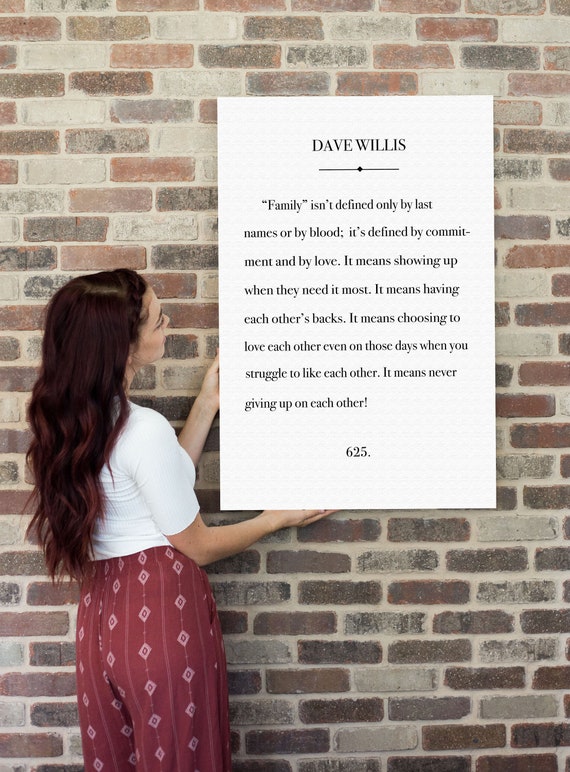 DAVE WILLIS
“Family” isn’t defined only by last
names or by blood; it’s defined by commit-
ment and by love. It means showing up
when they need it most. It means having
each other’s backs. It means choosing to
love each other even on those days when you
struggle to like each other. It means never
giving up on each other!
625.